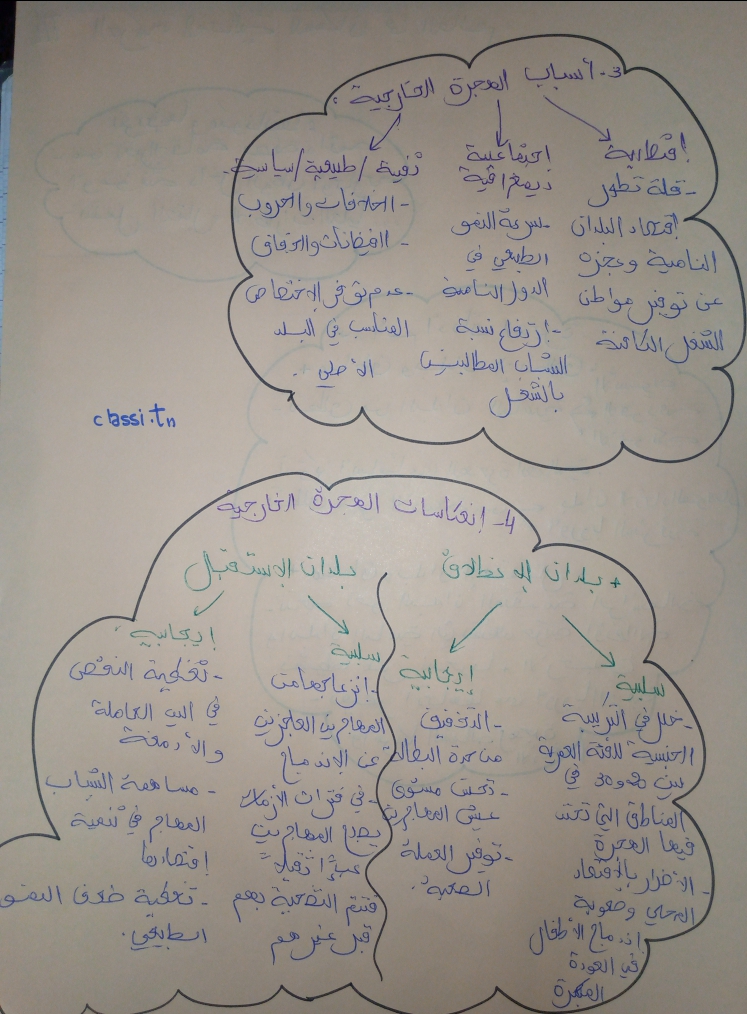 3- أسباب الهجرة الخارجية:
إقتصادية
- قلة تطور
إقتصاد البلدان
النامية وعجزه
عن توفير مواطن
الشغل الكافية
اجتماعية
ديمغرافية
- سرعة النمو
الطبيعي في
الدول النامية
- إرتفاع نسبة
الشباب المطالبين
بالشغل
/طبيعية/سياسة
- الخلافات والحروب
- الفيضانات والحرائق
- عدم توفر الإختصاص
المناسب في البلد
الأصلي.
classi.tn
4- إنعكاسات الهجرة الخارجية
+ بلدان الإنطلاق
سلبية
- خلل في التركيبة
الجنسية للفئة العمرية
بين 20 و30 في
المناطق التي تحتد
فيها الهجرة
- الأضرار بالاقتصاد
المحلي وصعوبة
اندماج الأطفال
في العودة
إيجابية
- التخفيف
من حدة البطالة
- تحسن مستوى
عيش المهاجرين
- توفير العملة
الصعبة.
بلدان الإستقبال
سلبية
- إنزعاجها من
المهاجرين العاجزين
عن الإندماج
- في فترات الأزمات
يصبح المهاجرين
عبءا ثقيلا
فتتم التضحية بهم
قبل غيرهم
إيجابية:
- تغطية النقص
في اليد العاملة
والأدمغة
- مساهمة الشباب
المهاجر في تنمية
إقتصادها
- تغطية ضعف النمو
الطبيعي.